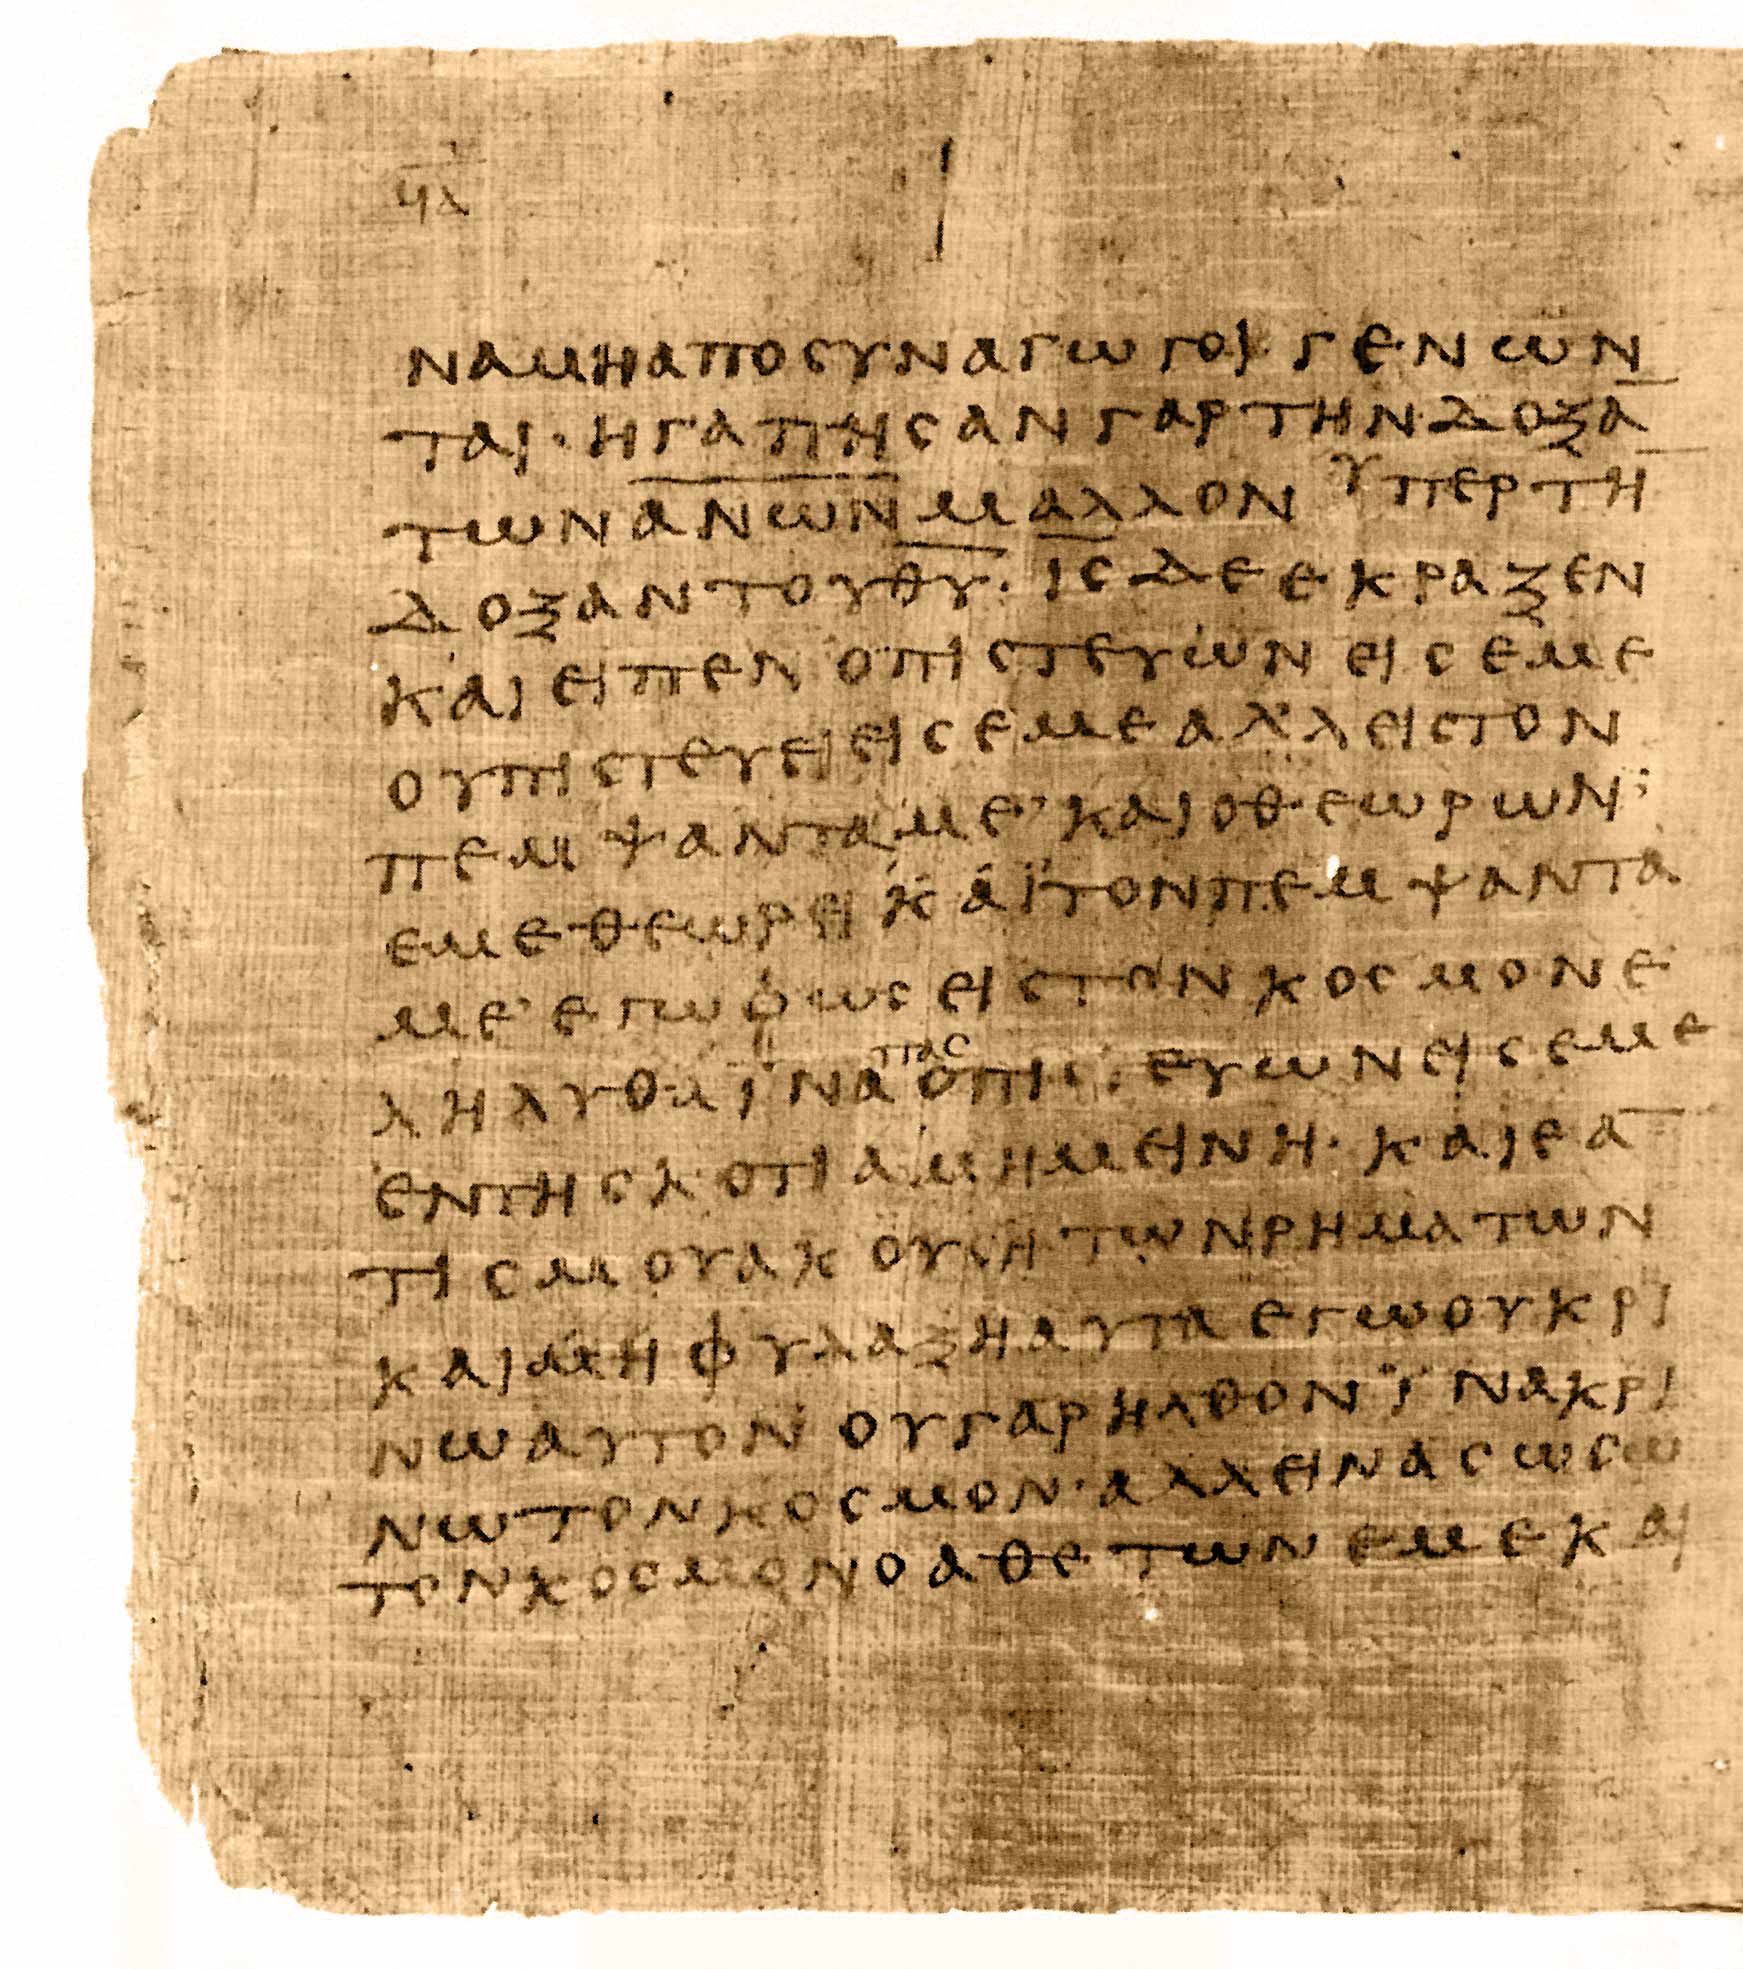 ϥα
ναμηαποσυναγωγοι γενων
ται· ηγαπησανγαρτην δοξα̅
τωνα̅ν̅ω̅ν̅ μαλλον υπερτη
δοξαντουθ̅υ̅· ι̅ς̅ δε εκραξεν
καιειπεν οπιστευων εισεμε
ουπιστευει εισεμε αλλ εις τον
πεμψανταμε· καιοθεωρων
εμεθεωρει καϊτονπεμψαντα
με· εγωφως ειστονκοσμονε
ληλυθα ϊνα`πας´οπισ ευωνεισεμε
εντησκοτιαμημεινη· καιεα̅
τισμουακουση τωνρηματων
καιμηφυλαξηαυτα εγωουκρι
νωαυτον ουγαρηλθονϊνακρι
νωτονκοσμον· αλλεινασωσω
τονκοσμον οαθετωνεμεκαι